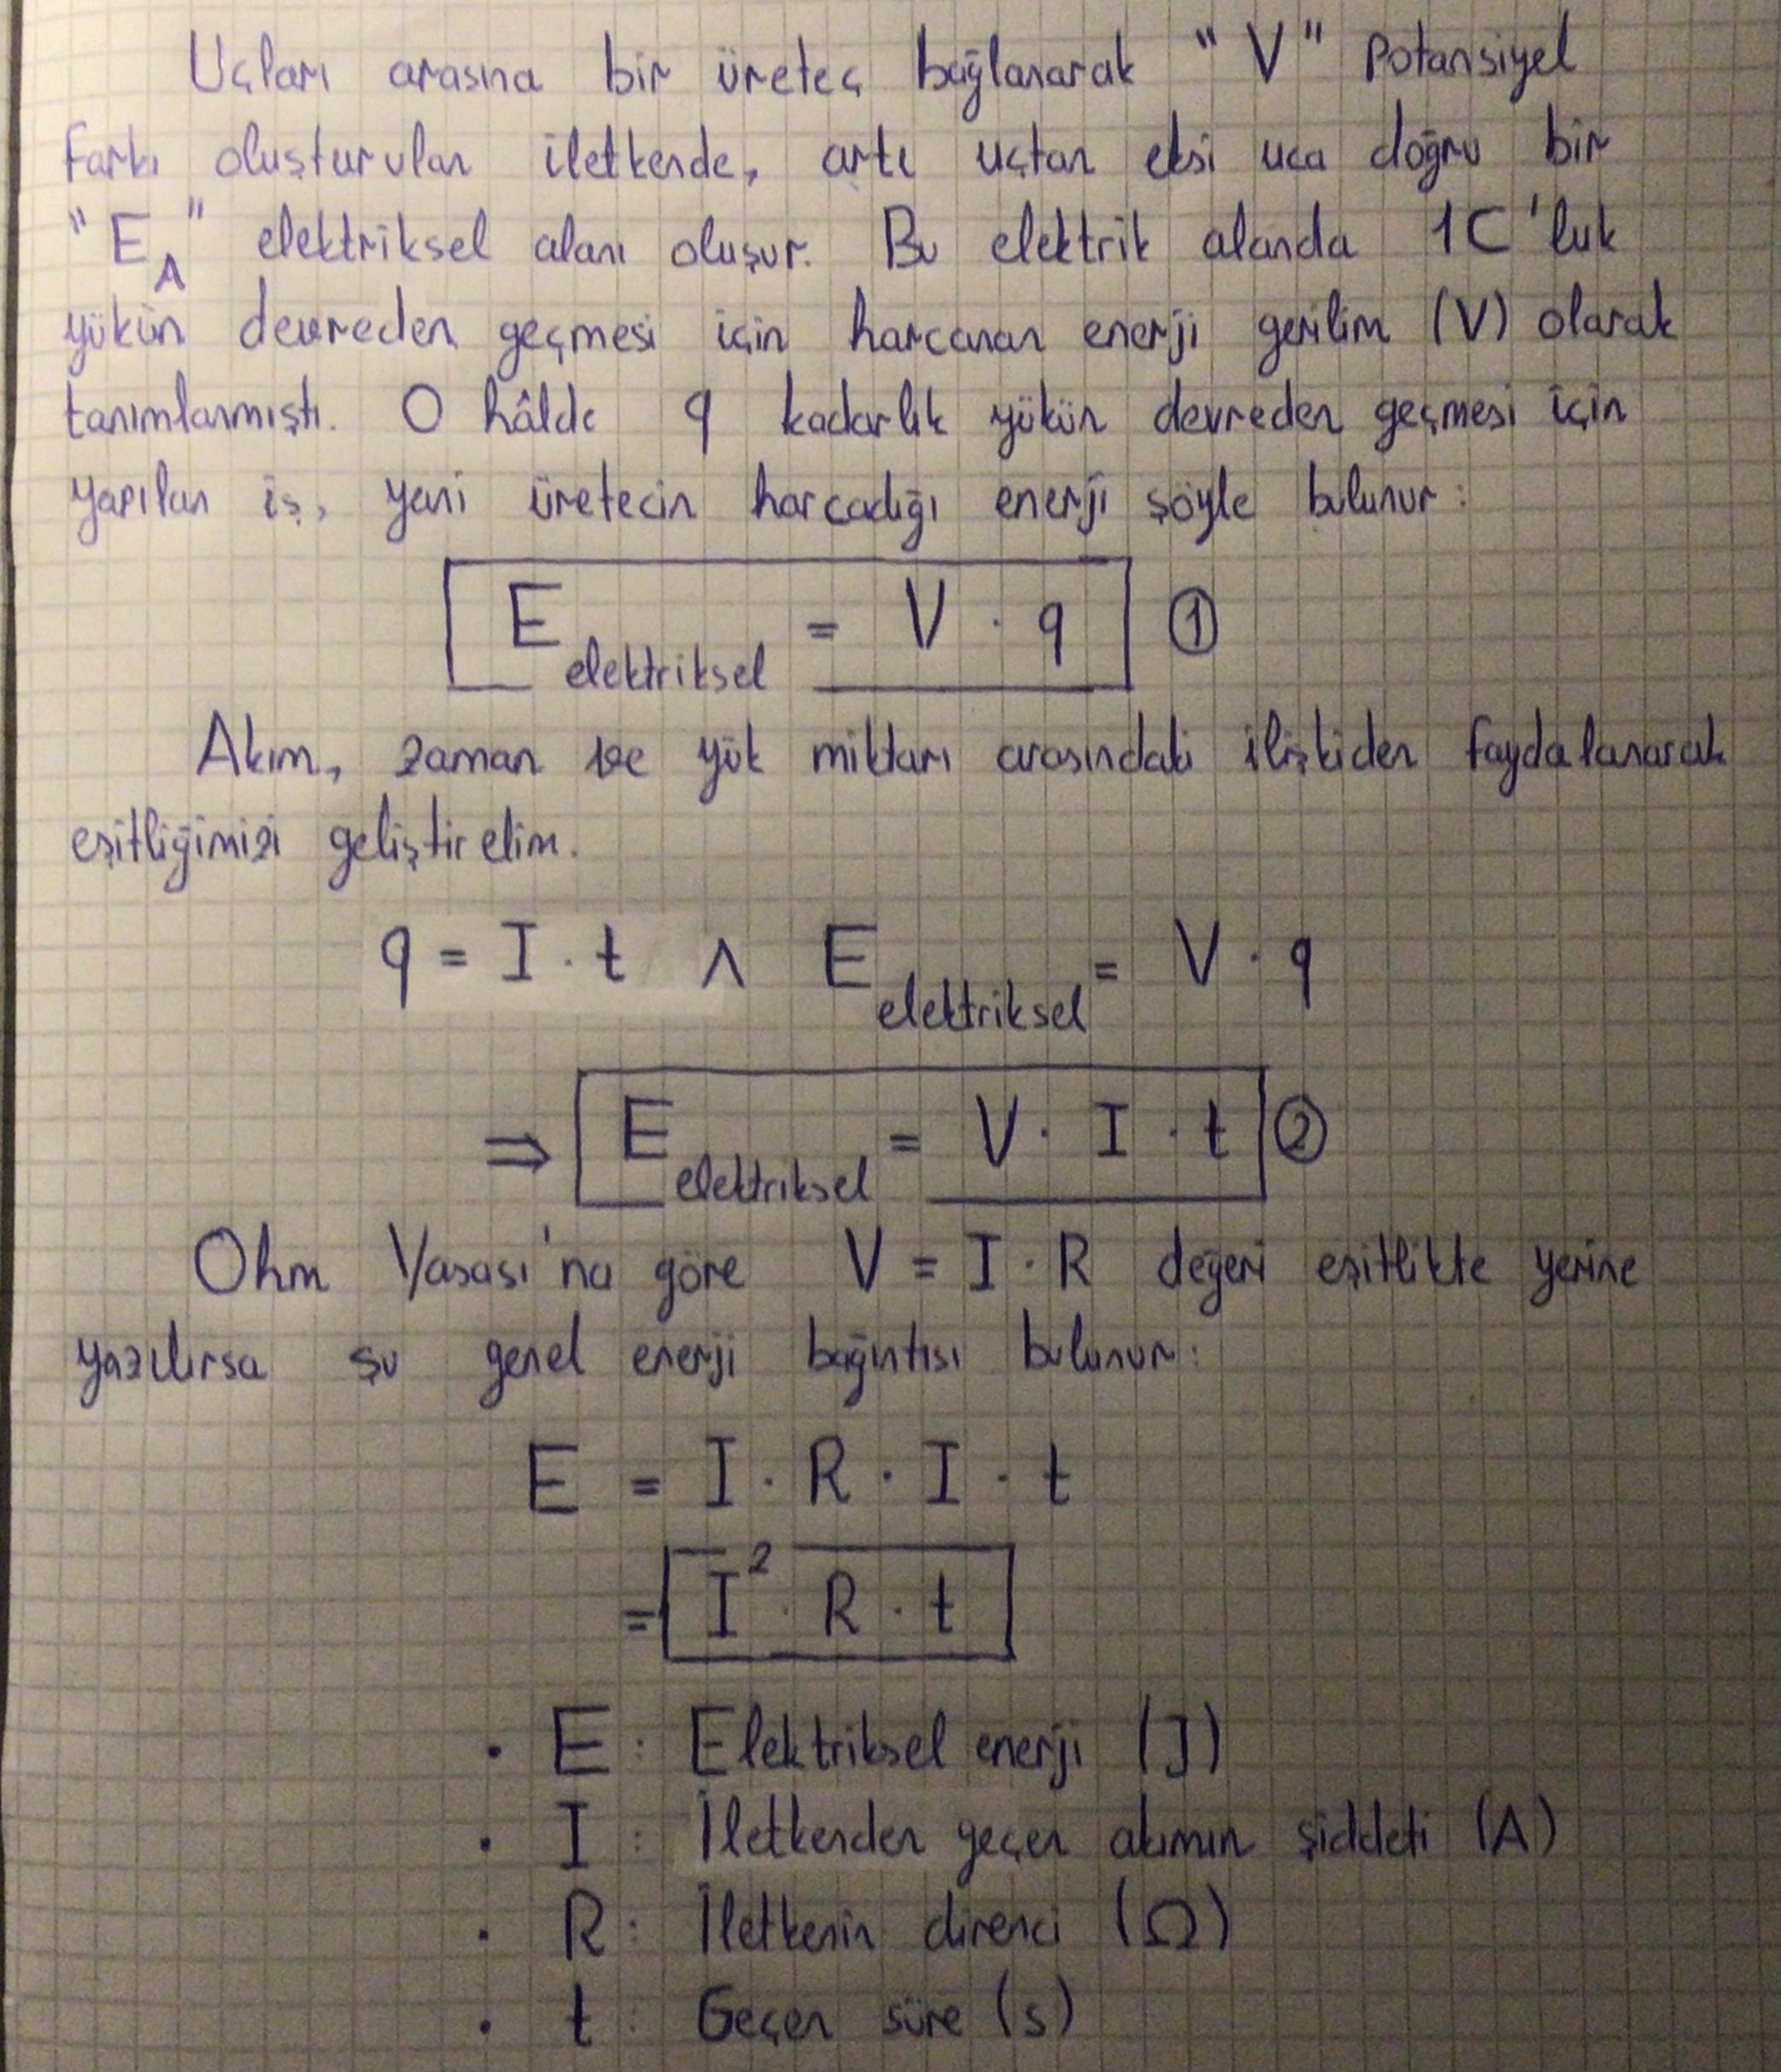 Uçları arasına bir üreteç bağlanarak "V" potansiyel
farkı oluşturulan iletkende, artı uçtan eksi uca doğru bir
"E_A" elektriksel alanı oluşur. Bu elektrik alanda 1C'luk
yükün devreden geçmesi için harcanan enerji gerilim (V) olarak
tanımlanmıştı. O hâlde q kadarlık yükün devreden geçmesi için
yapılan iş, yani üretecin harcadığı enerji şöyle bulunur:
E_elektriksel = V · q ①
Akım, zaman ve yük miktarı arasındaki ilişkiden faydalanarak
eşitliğimizi geliştirelim.
q = I · t ∧ E_elektriksel = V · q
⇒ E_elektriksel = V · I · t ②
Ohm Yasası'na göre V = I · R değeri eşitlikte yerine
yazılırsa şu genel enerji bağıntısı bulunur:
E = I · R · I · t
= I² · R · t
· E : Elektriksel enerji (J)
· I : İletkenden geçen akımın şiddeti (A)
· R : İletkenin direnci (Ω)
· t : Geçen süre (s)